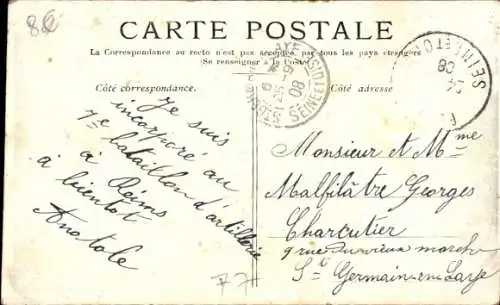 86
CARTE POSTALE
La Correspondance au recto n'est pas acceptée par tous les pays étrangers
(Se renseigner à la Poste)
Côté correspondance.
Côté adresse
SEINE ET OISE
08
SEINE ET OISE
08
Je suis
incorporé au
7e bataillon d'artillerie
à Reims
à bientot
Anatole
Monsieur et Mme
Malfilâtre Georges
Charcutier
9 rue du vieux marché
St Germain en Laye
77